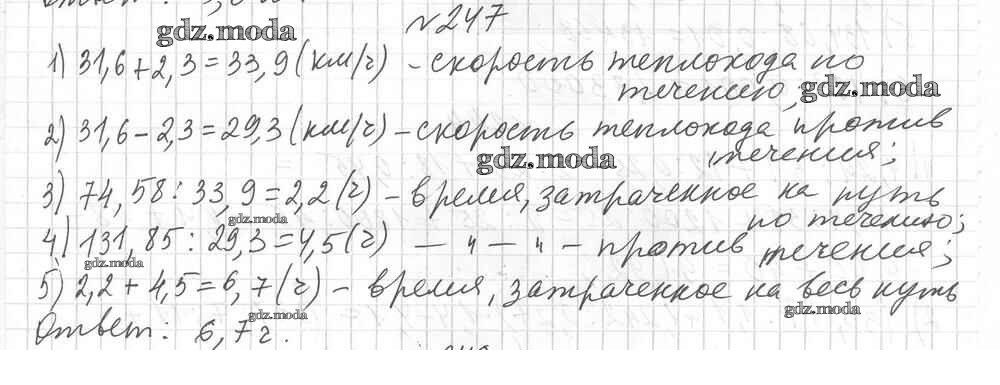 №247
gdz.moda
1) 31,6 + 2,3 = 33,9 (км/ч) - скорость теплохода по
течению;
gdz.moda
2) 31,6 - 2,3 = 29,3 (км/ч) - скорость теплохода против
течения;
gdz.moda
3) 74,58 : 33,9 = 2,2 (ч) - время, затраченное на путь
по течению;
gdz.moda
4) 131,85 : 29,3 = 4,5 (ч) — " — " — против течения;
gdz.moda
5) 2,2 + 4,5 = 6,7 (ч) - время, затраченное на весь путь
gdz.moda
gdz.moda
Ответ: 6,7 ч.